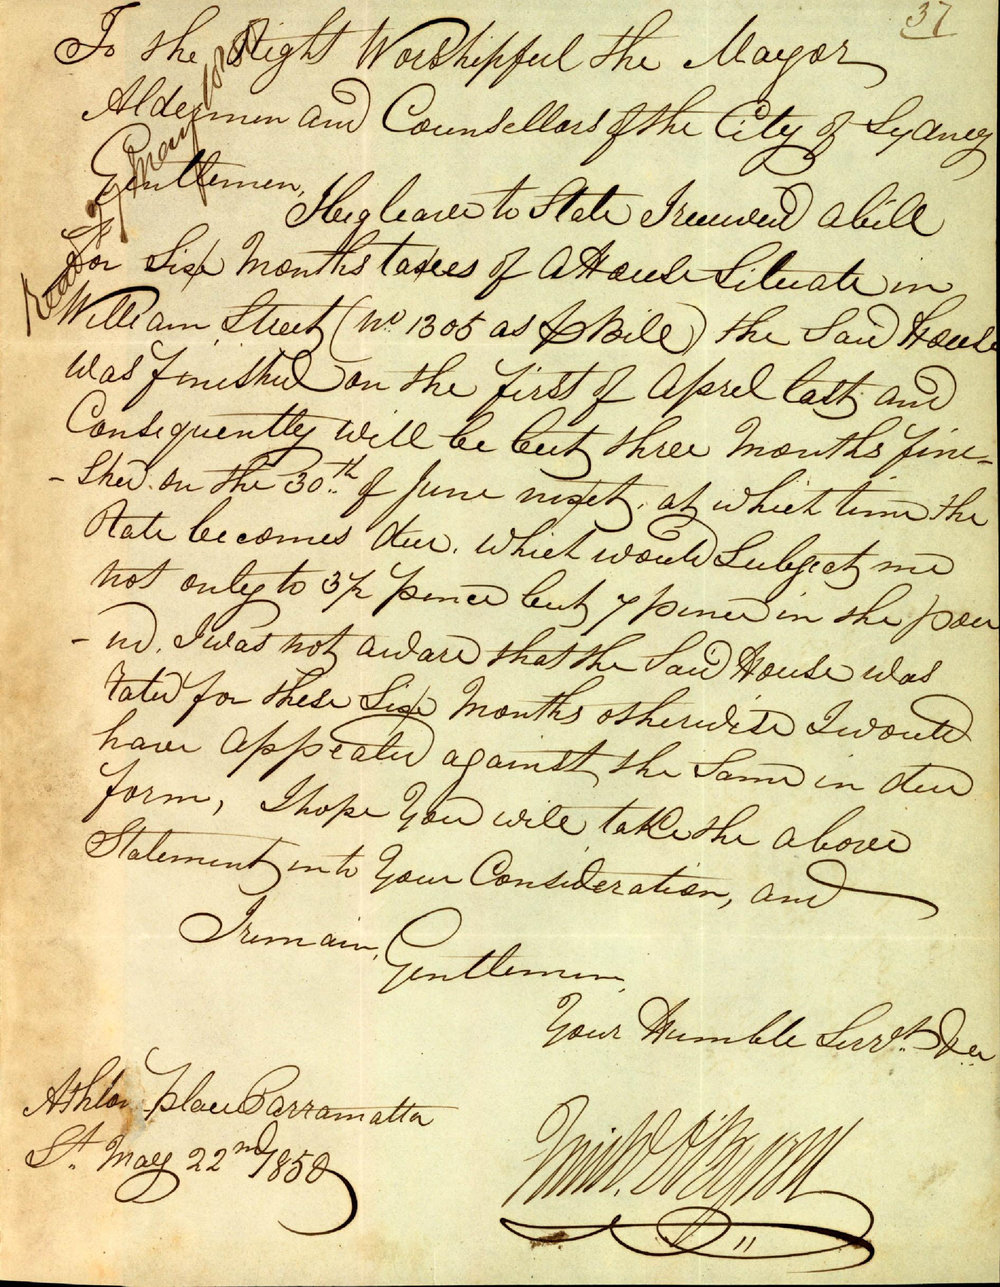 37
To the Right Worshipful the Mayor
Aldermen and Counsellors of the City of Sydney
Gentlemen,
I beg leave to State I received a bill
for Six Months taxes of a House Situate in
William Street (No 1305 as per Bill) the Said House
was finished on the first of April last and
Consequently will be but three Months fine-
-shed on the 30th of June next, at which time the
Rate becomes due. which would Subject me
not only to 3½ pence but 7 pence in the pou
-nd. I was not aware that the Said House was
rated for these Six Months otherwise I would
have appealed against the Same in due
form, I hope You will take the above
Statement into Your Consideration, and
I remain,
Gentlemen,
Your Humble Servt. &c
Ashton place Parramatta
St. May 22nd 1850
O'Byrne
Read 27 May 1850